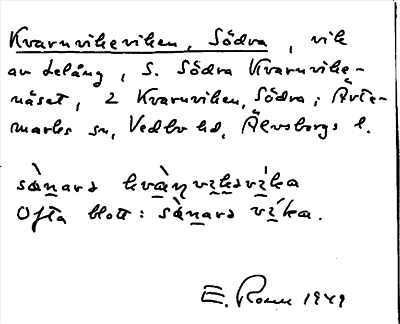 Kvarnvikeviken, Södra, vik
av Lelång, S. Södra Kvarnvike-
näset, 2 Kvarnviken, Södra; Ärte-
marks sn, Vedbo hd, Älvsborgs l.
sànara kvàṇvikavíka
Ofta blott: sànara víka.
E. 1949